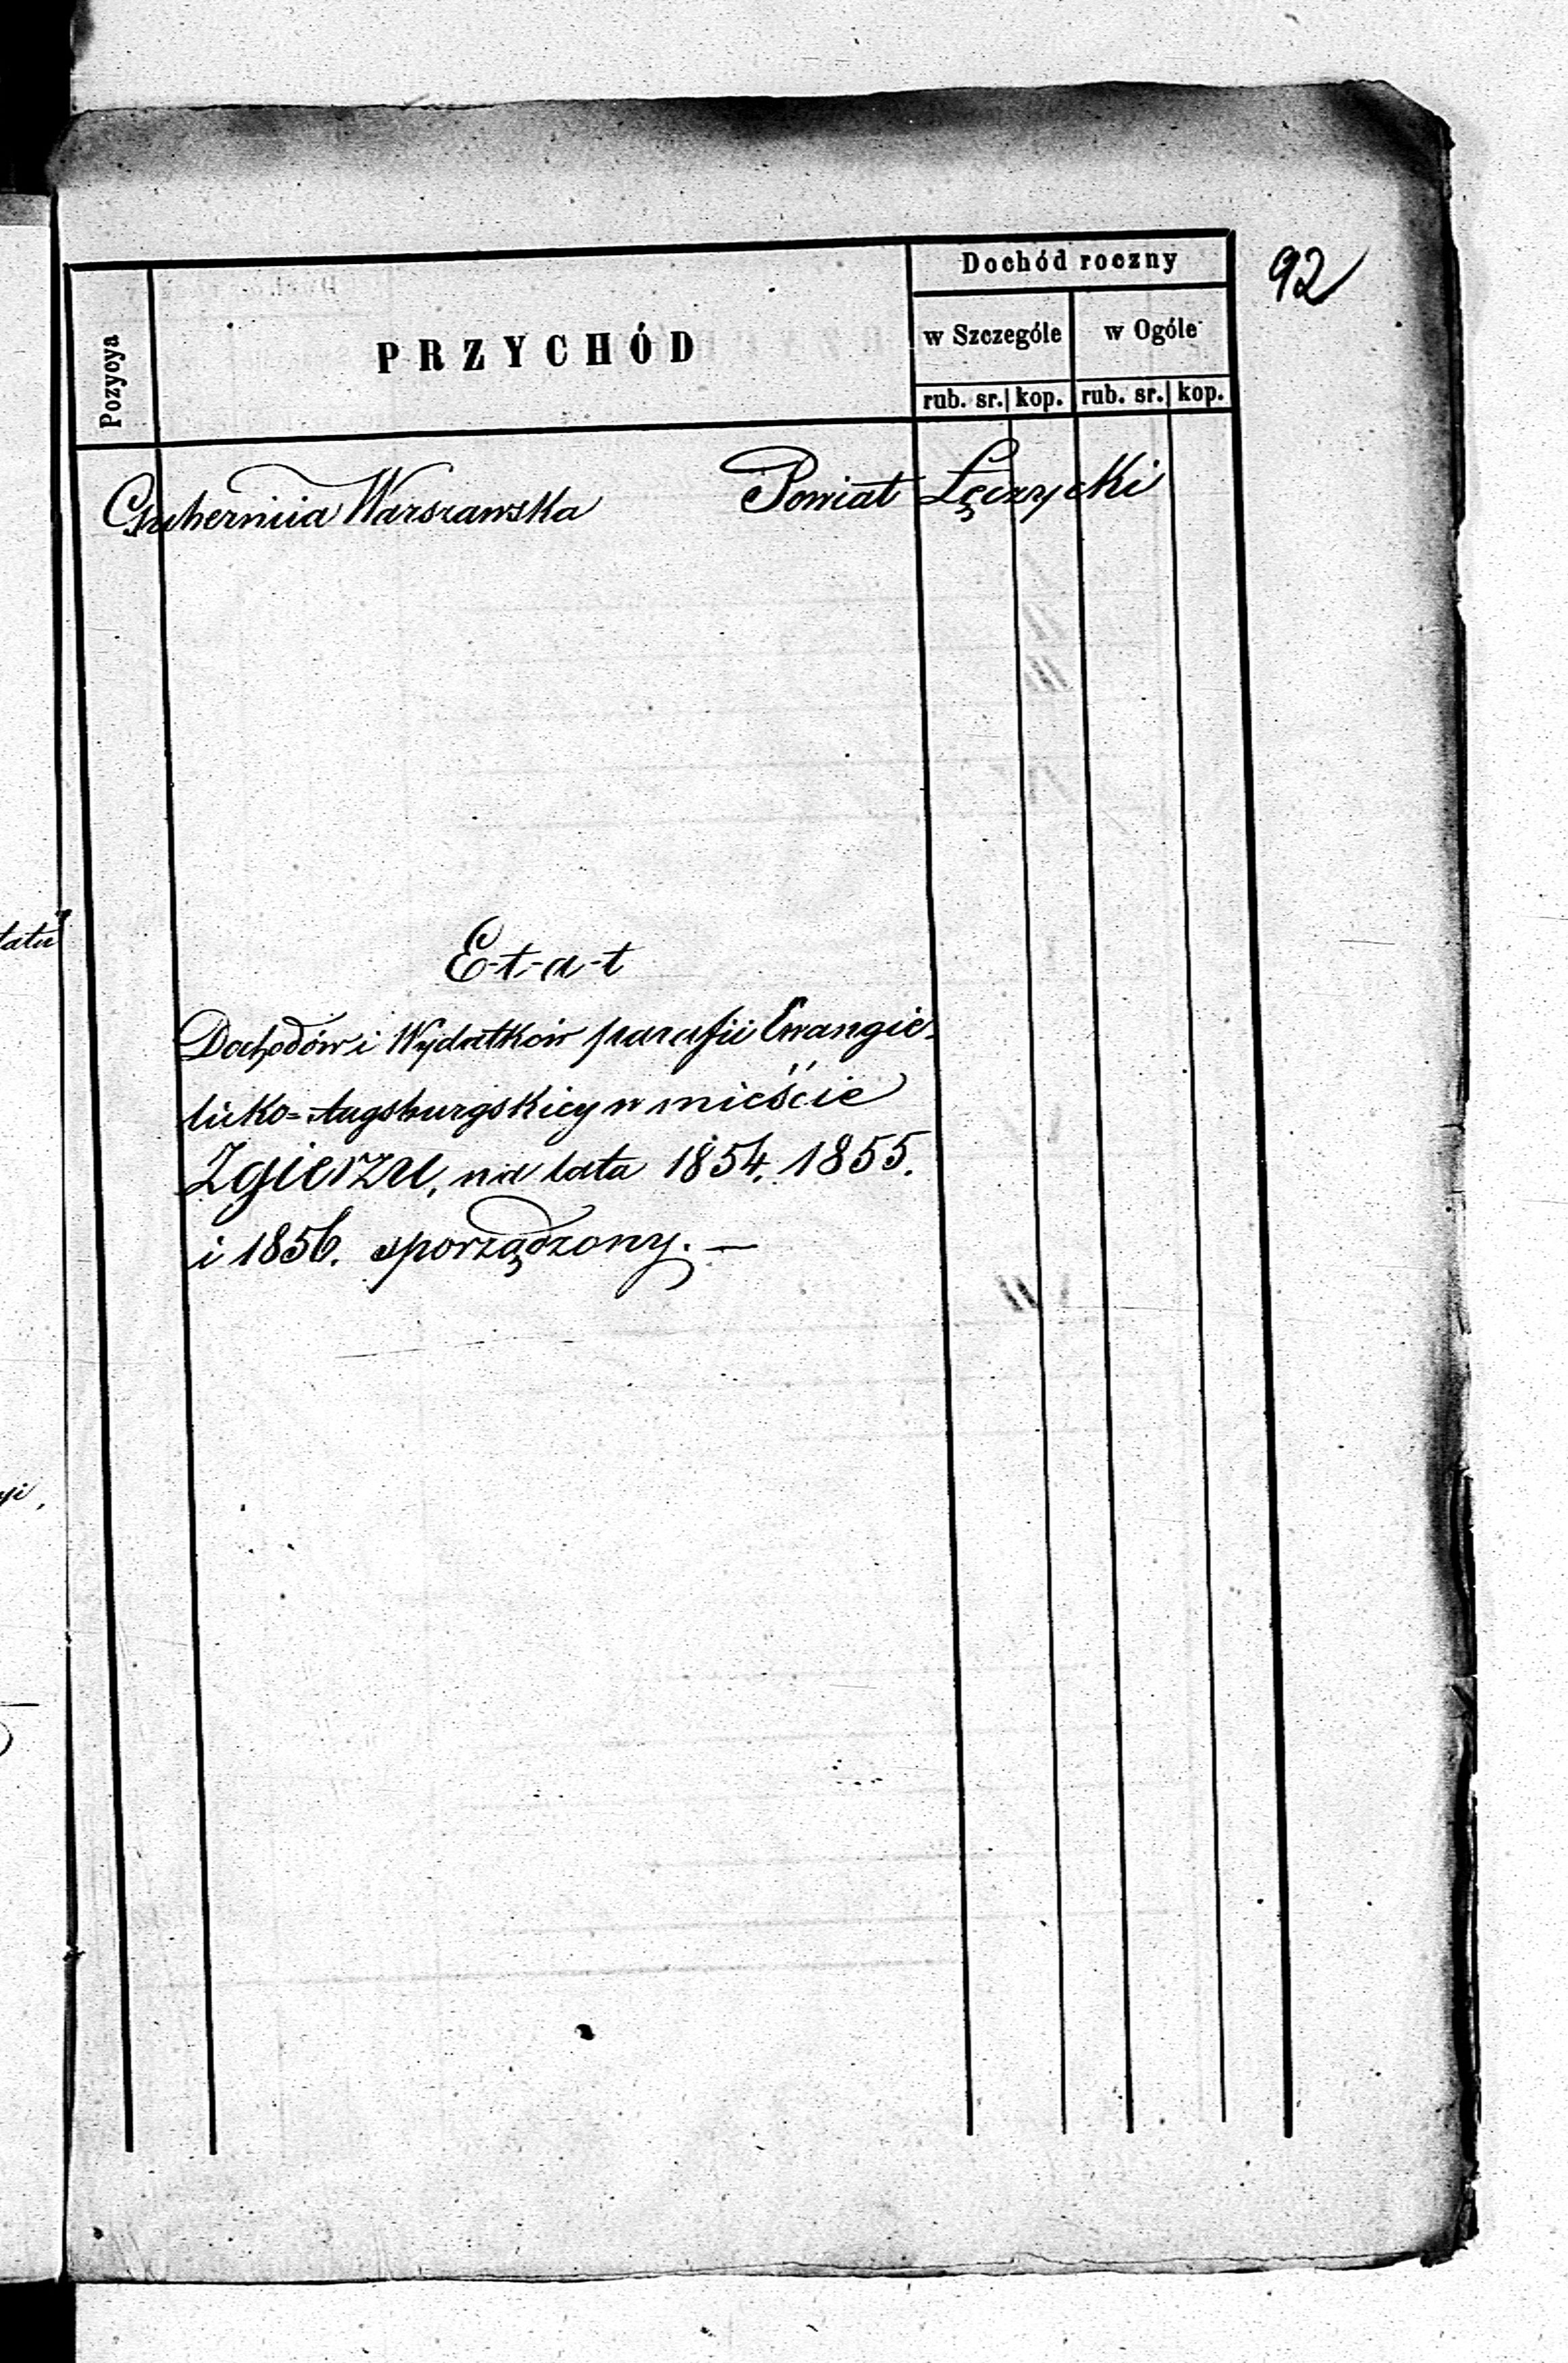 92
Dochód roczny
Pozycya
PRZYCHÓD
w Szczególe w Ogóle
rub. sr. kop. rub. sr. kop.
Guberniia Warszawska Powiat Łęczycki
E-t-a-t
Dochodów i Wydatków parafii Ewangie-
licko=Augsburgskiey w mieście
Zgierzu, na lata 1854. 1855.
i 1856. sporządzony. —